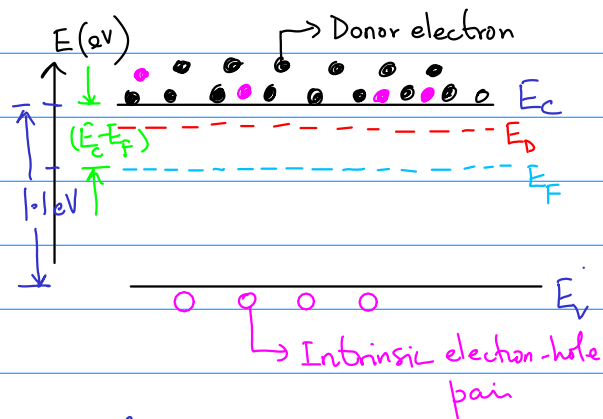 E(eV)
Donor electron
E_C
(E_C-E_F)
E_D
E_F
1.1eV
E_V
Intrinsic electron-hole
pair